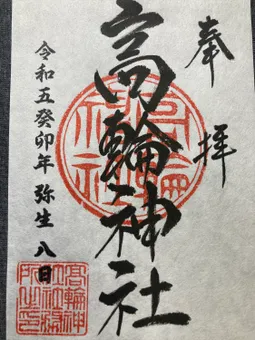 奉拝
高輪神社
令和五癸卯年 弥生 八日
高輪神社